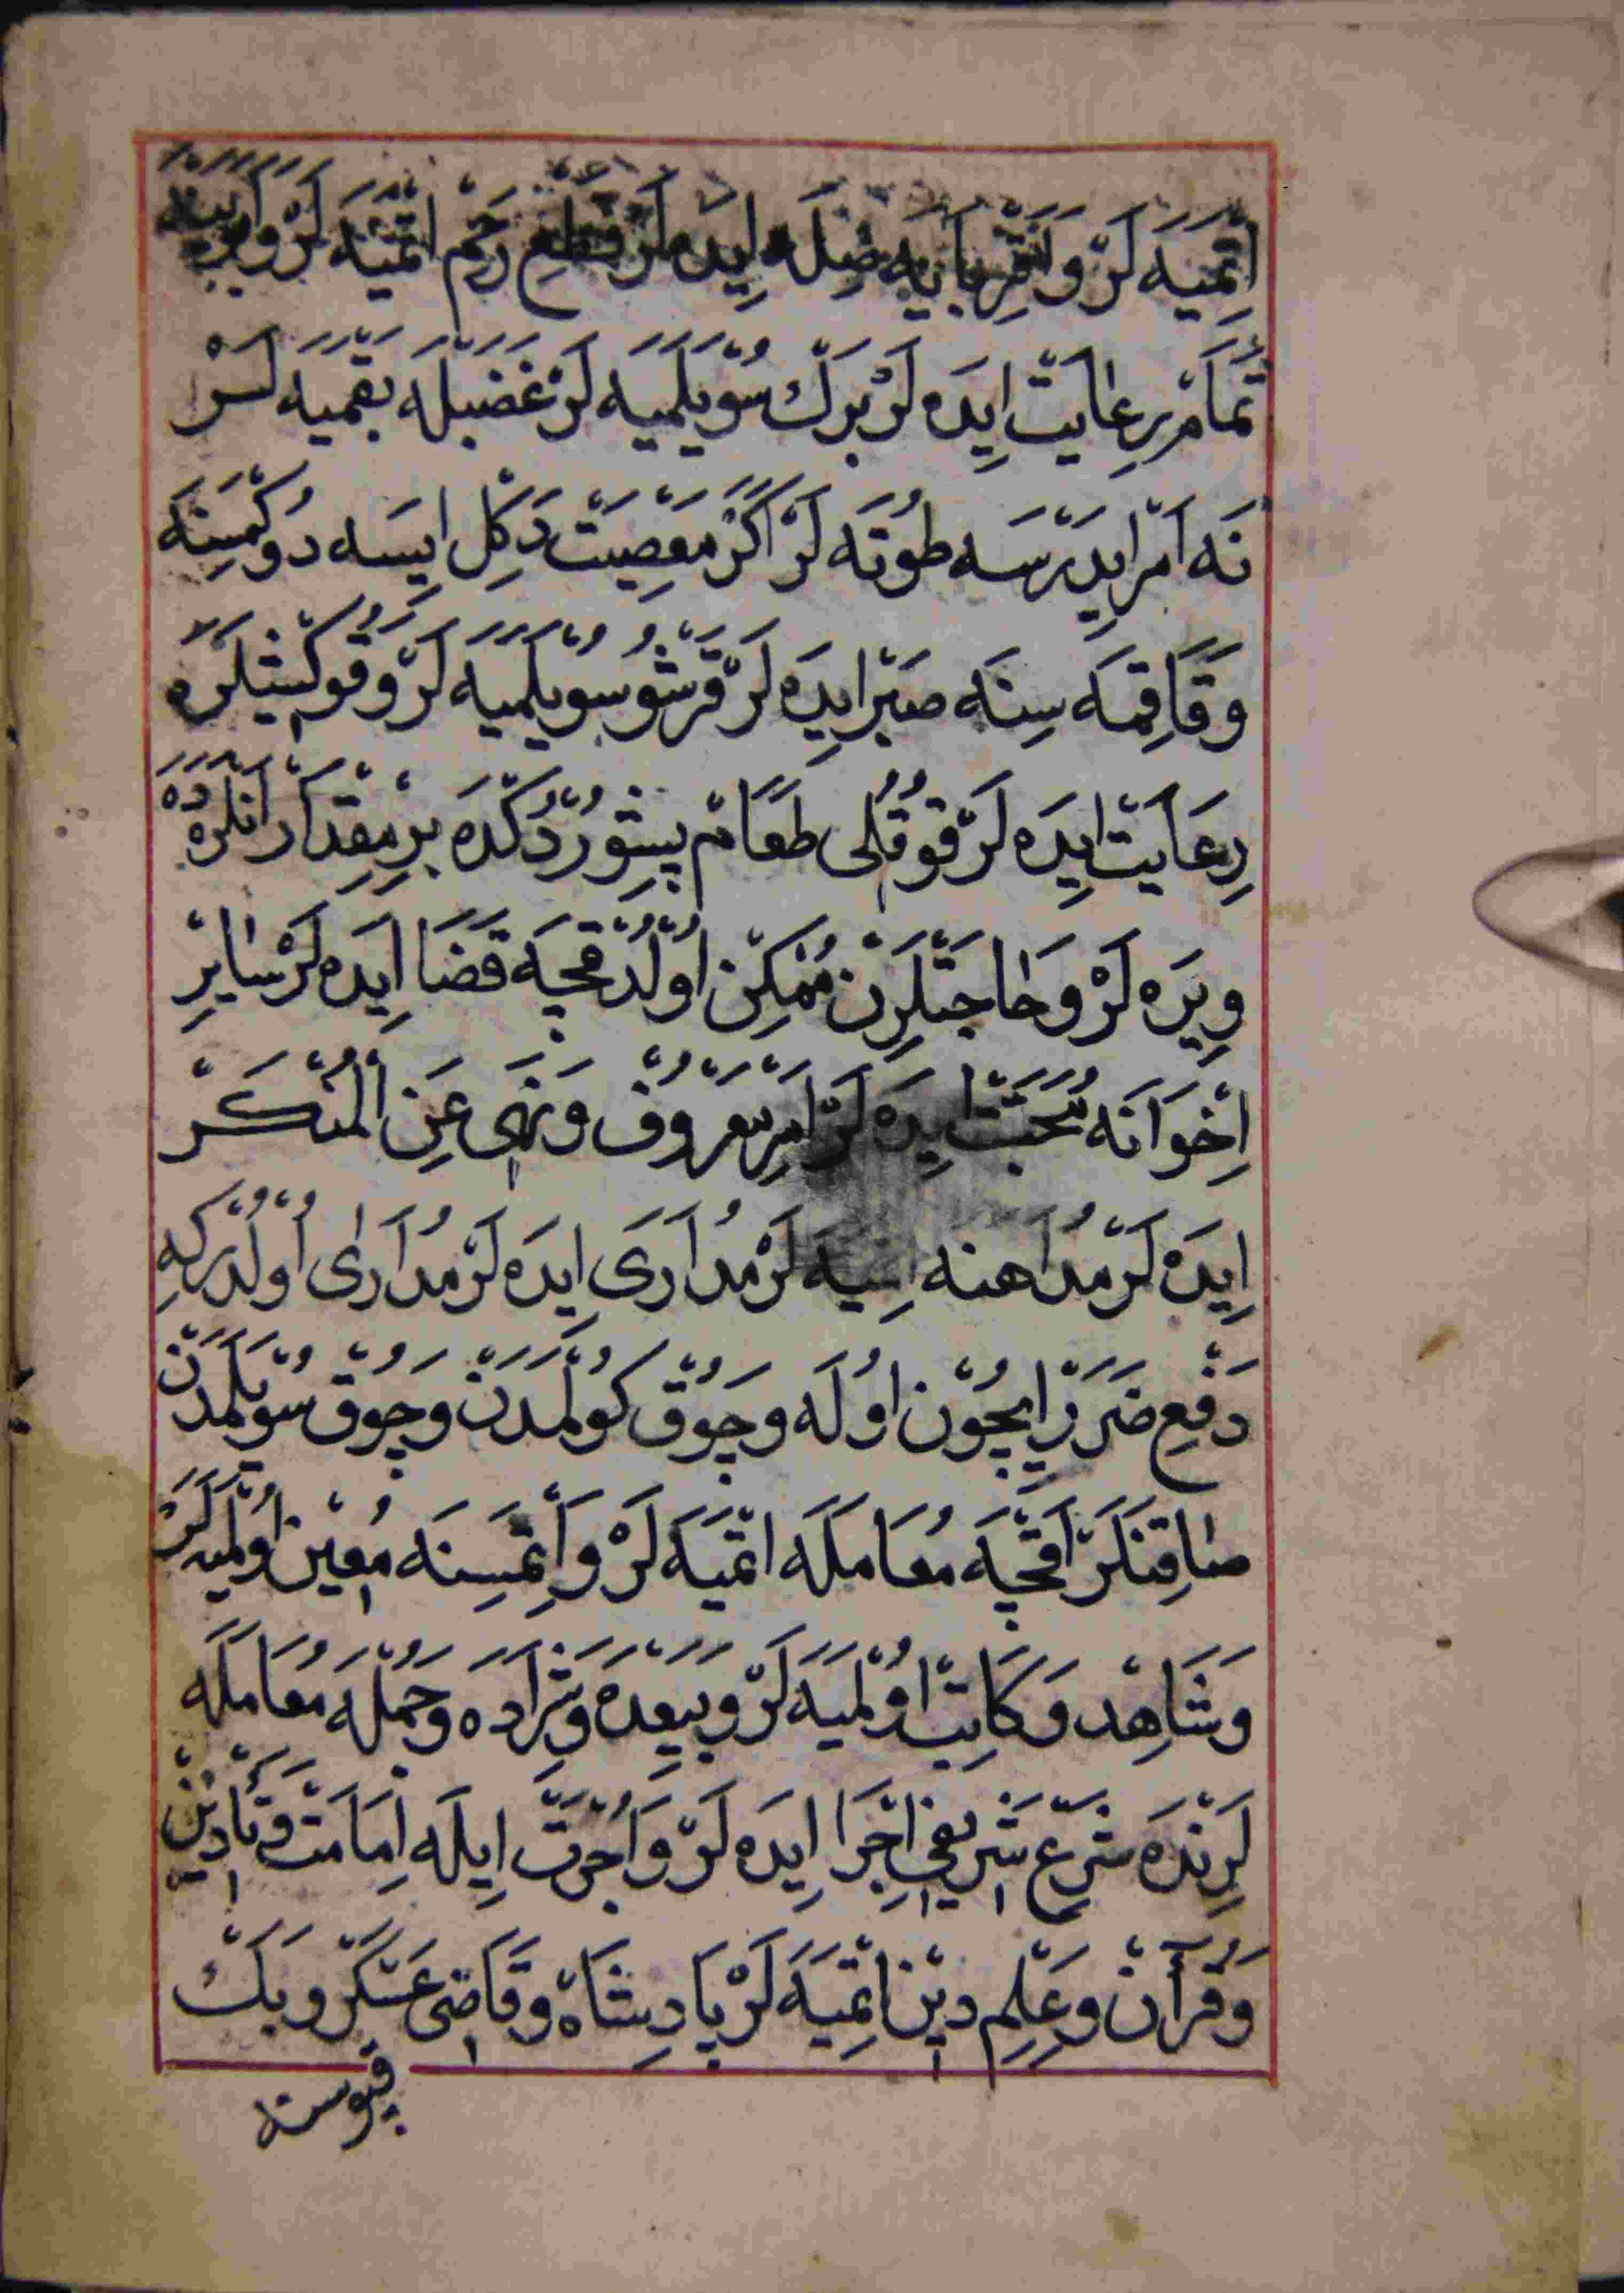 اِتْمِيَه لَرْ وَاَقْرِبَايَه صِلَه اِيدَه لَرْ قَطْعِ رَحِم اتْمِيَه لَرْ وَاَبَوَيْنَه
تَمَامْ رِعَايَتْ اِيدَه لَرْ بَرْك سُوْيلَمْيَه لَرْ غَضَبْلَه بَقْمَيَه لَرْ
نَه اَمْر ايدَرْسَه طُوتَه لَرْ اَكَرْ مَعْصِيَتْ دَكِلْ اِيسَه دُوكْمَسِنَه
وَقَاقِمَه سِنَه صَبْر ايدَه لَرْ قَرْشُو سُوْيلَمْيَه لَرْ وَقُوكْشِيلَرَه
رِعَايَتْ ايدَه لَرْ قُوقُلى طَعَامْ پِيشُورْدُكْدَه بِرْ مِقْدَارْ اَنْلَرَه دَه
وِيرَه لَرْ وَحَاجَتْلَرِنْ مُمْكِنْ اوُلْدُقْجَه قَضَا اِيدَه لَرْ سَايِرْ
اِخْوَانَه مُحَبَّتْ ايدَه لَرْ اَمْرِ مَعْرُوفْ وَنَهْى عَنِ الْمُنْكَرْ
اِيدَه لَرْ مُدَاهنه اتميَه لَرْ مُدَارَى اِيدَه لَرْ مُدَارَى اُوْلْدُرْكِه
دَفْعِ ضَرَرْ اِيچُونْ اوُلَه وَچُوقْ كُولْمَدَنْ وَچُوقْ سُوْيلَمَدَنْ
صَاقِنَلَرْ اَقْچَه مُعَامَلَه اتْمَيَه لَرْ وَاِتْمَسِنَه مُعِينْ اُوْلْمَيَه لَرْ
وَشَاهِدْ وَكَاتِبْ اوُلْمَيَه لَرْ وَبَيْعِدَه وَشِرَادَه وَجُمْلَه مُعَامَلَه
لَرِنْدَه شَرْعِ شَرِيفى اِجْرَا اِيدَه لَرْ وَاُجْرَتْ اِيلَه اِمَامَتْ وَتَأْذِينْ
وَقُرْآنْ وَعِلْمِ دِينْ اتْمَيَه لَرْ پَادِشَاه وَقَاضِى عَسْكَرْ وَبَكْ
قپوسنه